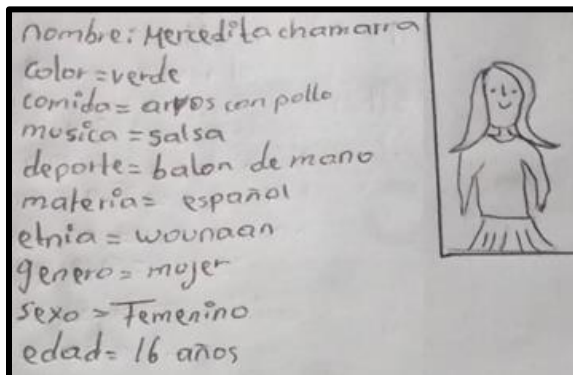 nombre: Mercedita chamarra
color = verde
comida = arros con pollo
musica = salsa
deporte = balon de mano
materia = español
etnia = wounaan
genero = mujer
sexo = Femenino
edad = 16 años